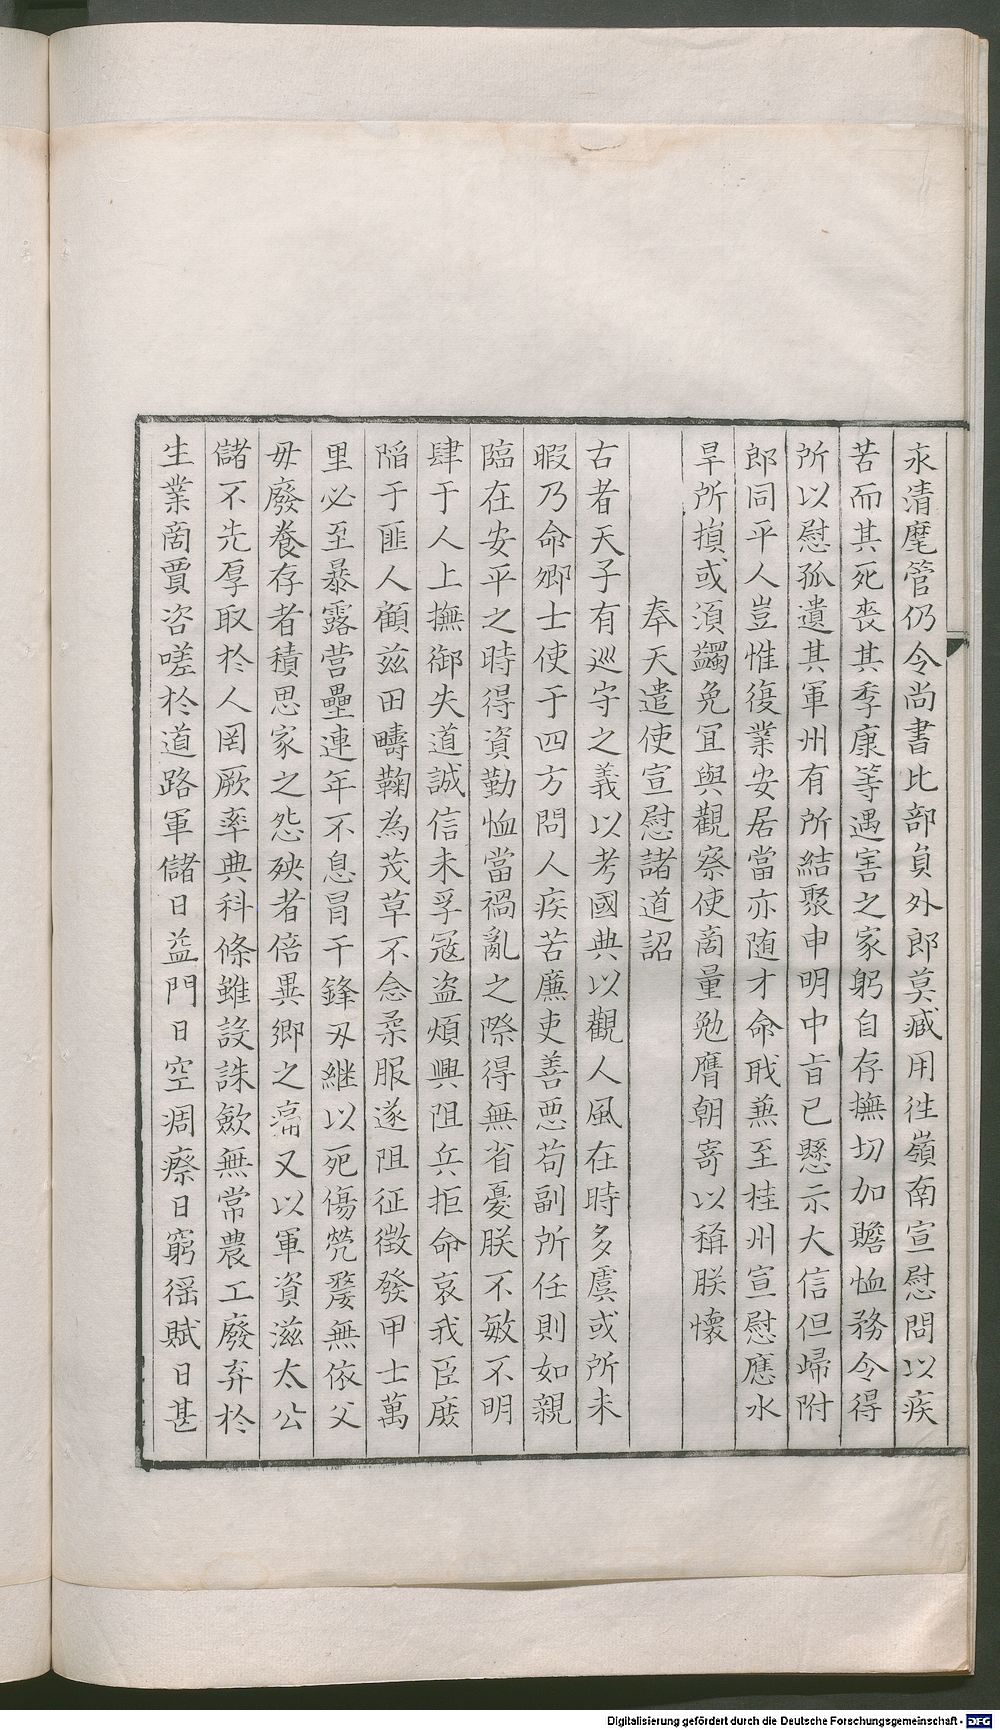 永清麾管仍令尚書比部員外郎莫臧用徃嶺南宣慰問以疾
苦而其死喪其季康等遇害之家躬自存撫切加贍恤務令得
所以慰孤遺其軍州有所結聚申明中旨已懸示大信但歸附
郎同平人豈惟復業安居當亦随才命戢兼至桂州宣慰應水
旱所損或須蠲免冝與觀察使商量勉膺朝寄以稱朕懷
奉天遣使宣慰諸道詔
古者天子有巡守之義以考國典以觀人風在時多虞或所未
暇乃命卿士使于四方問人疾苦廉吏善惡苟副所任則如親
臨在安平之時得資勤恤當禍亂之際得無省憂朕不敏不明
肆于人上撫御失道誠信未孚冦盜煩興阻兵拒命哀我臣庶
䧟于匪人顧兹田疇鞠為茂草不念柔服遂阻征徴發甲士萬
里必至暴露营壘連年不息冐干鋒刃継以死傷煢嫠無依父
毋廢養存者積思家之怨殀者倍異鄉之痛又以軍資滋太公
儲不先厚取於人罔厥率典科條雖設誅歛無常農工廢弃於
生業商賈咨嗟於道路軍儲日益門日空凋瘵日窮徭賦日甚
Digitalisierung gefördert durch die Deutsche Forschungsgemeinschaft - DFG